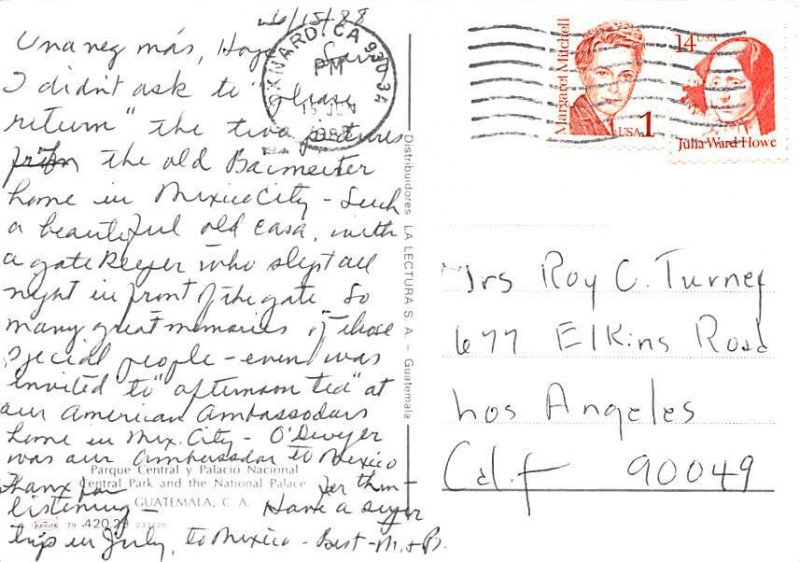 6/15/88
Una neg más, Hoyo
I didn't ask to "please
return" the two pictures
from the old Bacmeister
home in Mexico City - Such
a beautiful old casa, with
a gate keeper who slept all
night in front of the gate. So
many great memories of those
special people - even was
invited to "afternoon tea" at
our American Ambassadors
home in Mex. City - O'Dwyer
was our Ambassador to Mexico
Parque Central y Palacio Nacional
Central Park and the National Palace
GUATEMALA, C. A.
Thanx for
listening - Have a super
79 420.29
trip in July, to Mexico - Best - M. & B.
Distribuidores LA LECTURA S. A. - Guatemala
OXNARD, CA 930 3A
PM
15 JUN
Margaret Mitchell
USA 1
14 USA
Julia Ward Howe
Mrs Roy C. Turney
677 Elkins Road
Los Angeles
Calif 90049